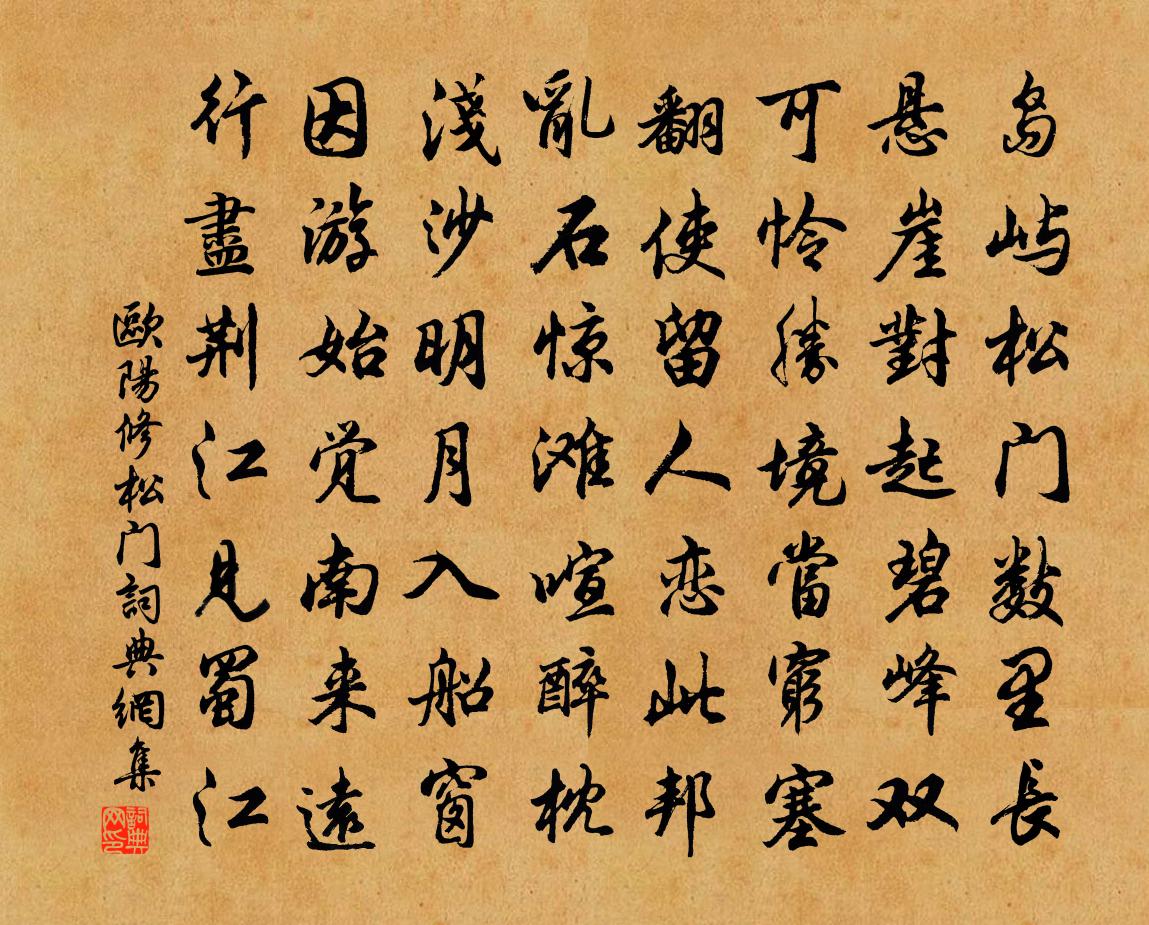 岛屿松门数里長
悬崖對起碧峰双
可怜勝境當窮塞
翻使留人恋此邦
亂石惊滩喧醉枕
淺沙明月入船窗
因游始觉南来遠
行盡荆江見蜀江
歐陽修松门詞典網集
詞典网印